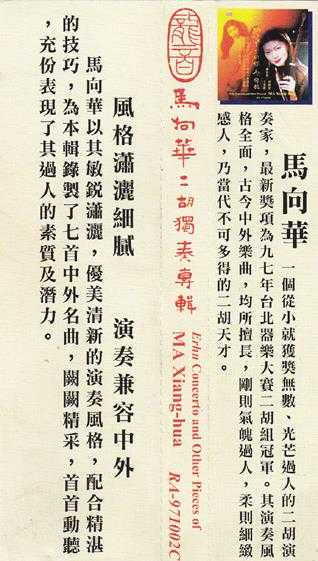 馬向華 一個從小就獲獎無數、光芒過人的二胡演
奏家，最新獎項為九七年台北器樂大賽二胡組冠軍。其演奏風
格全面，古今中外樂曲，均所擅長，剛則氣魄過人，柔則細緻
感人，乃當代不可多得的二胡天才。
龍音
馬向華二胡獨奏專輯
Erhu Concerto and Other Pieces of
MA Xiang-hua RA-971002C
風格瀟灑細膩 演奏兼容中外
馬向華以其敏銳瀟灑，優美清新的演奏風格，配合精湛
的技巧，為本輯錄製了七首中外名曲，闋闋精采，首首動聽
，充份表現了其過人的素質及潛力。